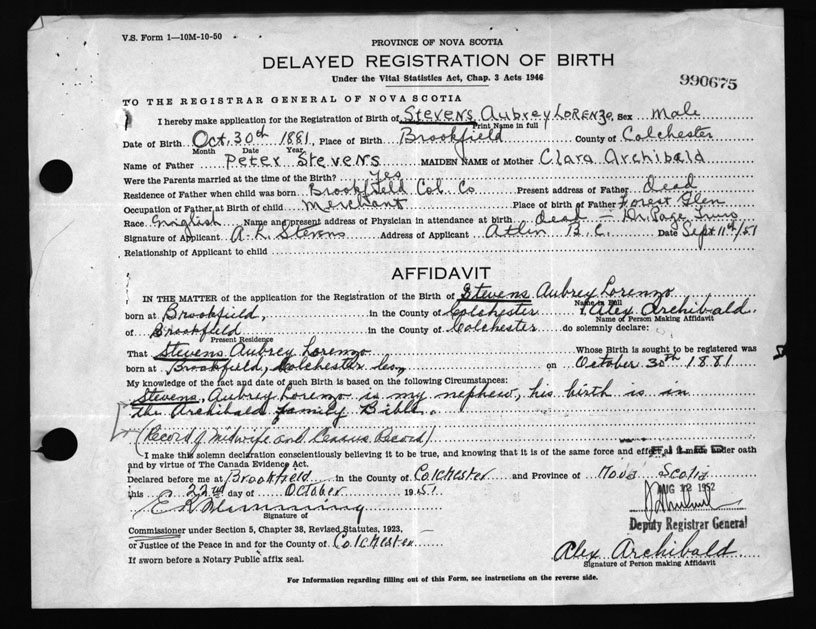 V.S. Form 1—10M-10-50
PROVINCE OF NOVA SCOTIA
DELAYED REGISTRATION OF BIRTH
Under the Vital Statistics Act, Chap. 3 Acts 1946
990675
TO THE REGISTRAR GENERAL OF NOVA SCOTIA
I hereby make application for the Registration of Birth of Stevens Aubrey Lorenzo, Sex Male
Print Name in full
Date of Birth Oct. 30th 1881, Place of Birth Brookfield County of Colchester
Month Date Year
Name of Father Peter Stevens MAIDEN NAME of Mother Clara Archibald
Were the Parents married at the time of the Birth? Yes
Residence of Father when child was born Brookfield Col. Co Present address of Father Dead
Occupation of Father at Birth of child Merchant Place of birth of Father Forest Glen
Race English Name and present address of Physician in attendance at birth dead — Dr. Page, Truro
Signature of Applicant A. L. Stevens Address of Applicant Atlin B.C. Date Sept 11th/51
Relationship of Applicant to child
AFFIDAVIT
IN THE MATTER of the application for the Registration of the Birth of Stevens Aubrey Lorenzo
Name in Full
born at Brookfield, in the County of Colchester I, Alex Archibald
Name of Person Making Affidavit
of Brookfield in the County of Colchester do solemnly declare:
Present Residence
That Stevens Aubrey Lorenzo Whose Birth is sought to be registered was
born at Brookfield, Colchester Co. on October 30th 1881
My knowledge of the fact and date of such Birth is based on the following Circumstances:
Stevens, Aubrey Lorenzo is my nephew, his birth is in
the Archibald family Bible.
(Record of Midwife and Census Record)
I make this solemn declaration conscientiously believing it to be true, and knowing that it is of the same force and effect as if made under oath
and by virtue of The Canada Evidence Act.
FILED
Declared before me at Brookfield in the County of Colchester and Province of Nova Scotia
this 22nd day of October 1951
AUG 12 1952
Signature of
Deputy Registrar General
Commissioner under Section 5, Chapter 38, Revised Statutes, 1923,
or Justice of the Peace in and for the County of Colchester
Alex Archibald
Signature of Person making Affidavit
If sworn before a Notary Public affix seal.
For Information regarding filling out of this Form, see instructions on the reverse side.